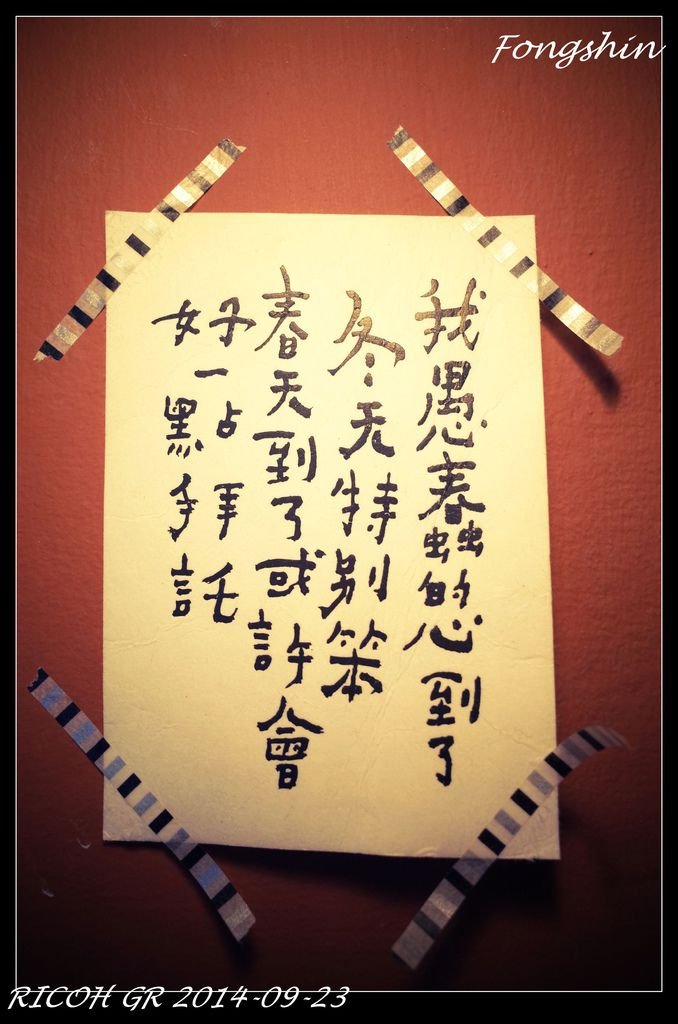 Fongshin
我愚蠢的心到了
冬天特別笨
春天到了或許會
好一點 拜託
RICOH GR 2014-09-23